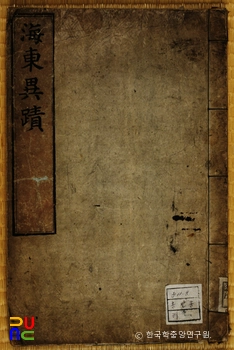 海東異蹟
© 한국학중앙연구원